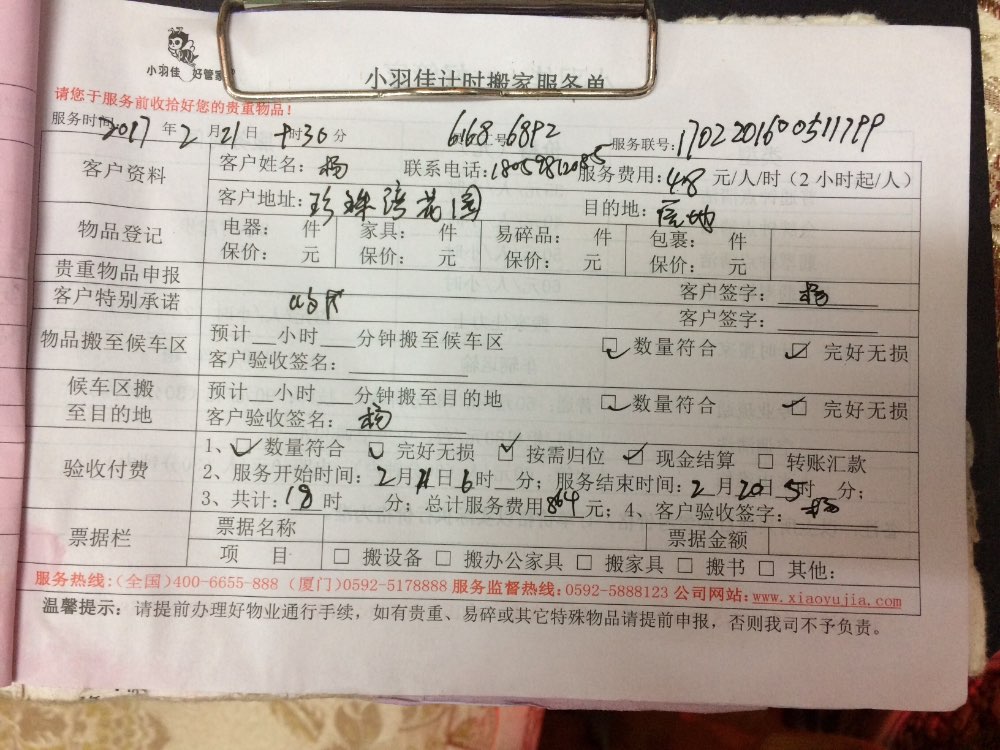 小羽佳 好管家
小羽佳计时搬家服务单
请您于服务前收拾好您的贵重物品！
服务时间 2017 年 2 月 21 日 时30 分 6168 6892 服务联号：1702201600511799
客户资料 客户姓名：杨 联系电话： 服务费用：48 元/人/时（2 小时起/人）
客户地址：珍珠湾花园 目的地：
物品登记 电器： 件 家具： 件 易碎品： 件 包裹： 件
保价： 元 保价： 元 保价： 元 保价： 元
贵重物品申报 客户签字：杨
客户特别承诺 客户签字：
物品搬至候车区 预计__小时___分钟搬至候车区 数量符合 完好无损
客户验收签名：
候车区搬至目的地 预计__小时___分钟搬至目的地 数量符合 完好无损
客户验收签名：杨
验收付费 1、数量符合 完好无损 按需归位 现金结算 转账汇款
2、服务开始时间：2月 日 6时__分；服务结束时间：2月20日5时__分；
3、共计：18时___分；总计服务费用864元；4、客户验收签字：杨
票据栏 票据名称 票据金额
项 目 搬设备 搬办公家具 搬家具 搬书 其他：
服务热线：（全国）400-6655-888（厦门）0592-5178888 服务监督热线：0592-5888123 公司网站：www.xiaoyujia.com
温馨提示：请提前办理好物业通行手续，如有贵重、易碎或其它特殊物品请提前申报，否则我司不予负责。